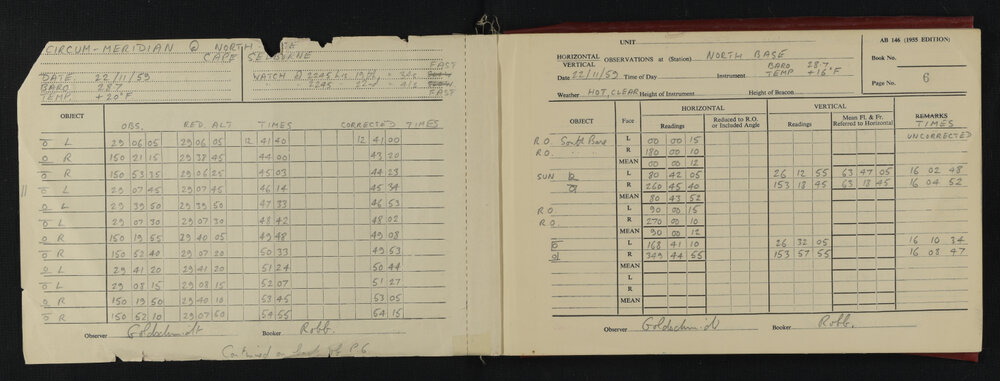 CIRCUM-MERIDIAN @ NORTH
CAPE SELBORNE
DATE 22/11/59 WATCH @ 2245 hrs 19th, = 34s EAST
BARO 28.7 " " 2245 22nd = 41s FAST
TEMP +20°F
OBJECT OBS. RED. ALT TIMES CORRECTED TIMES
O L 29 06 05 29 06 05 12 41 40 12 41 00
O R 150 21 15 29 38 45 44 01 43 20
O R 150 53 35 29 06 25 45 03 44 23
O L 29 07 45 29 07 45 46 14 45 34
O L 29 39 50 29 39 50 47 33 46 53
O L 29 07 30 29 07 30 48 42 48 02
O R 150 19 55 29 40 05 49 48 49 08
O R 150 52 40 29 07 20 50 33 49 53
O L 29 41 20 29 41 20 51 24 50 44
O L 29 08 15 29 08 15 52 07 51 27
O R 150 19 50 29 40 10 53 45 53 05
O R 150 52 10 29 07 50 54 55 54 15
Observer Goldschmidt Booker Robb.
Continued on back of P. 6
UNIT
AB 146 (1955 EDITION)
HORIZONTAL VERTICAL OBSERVATIONS at (Station) NORTH BASE
Book No.
Date 22/11/59 Time of Day Instrument BARO 28.7 TEMP +16°F
Page No. 6
Weather HOT, CLEAR Height of Instrument Height of Beacon
OBJECT Face HORIZONTAL VERTICAL REMARKS
Readings Reduced to R.O. or Included Angle Readings Mean Fl. & Fr. Referred to Horizontal TIMES
UNCORRECTED
R.O. South Base L 00 00 15
R.O. " " R 180 00 10
MEAN 00 00 12
SUN L 80 42 05 26 12 55 63 47 05 16 02 48
R 260 45 40 153 18 45 63 18 45 16 04 52
MEAN 80 43 52
R.O. L 90 00 15
R.O. R 270 00 10
MEAN 90 00 12
L 168 41 10 26 32 05 16 10 34
R 349 44 55 153 57 55 16 08 47
MEAN
L
R
MEAN
Observer Goldschmidt Booker Robb.